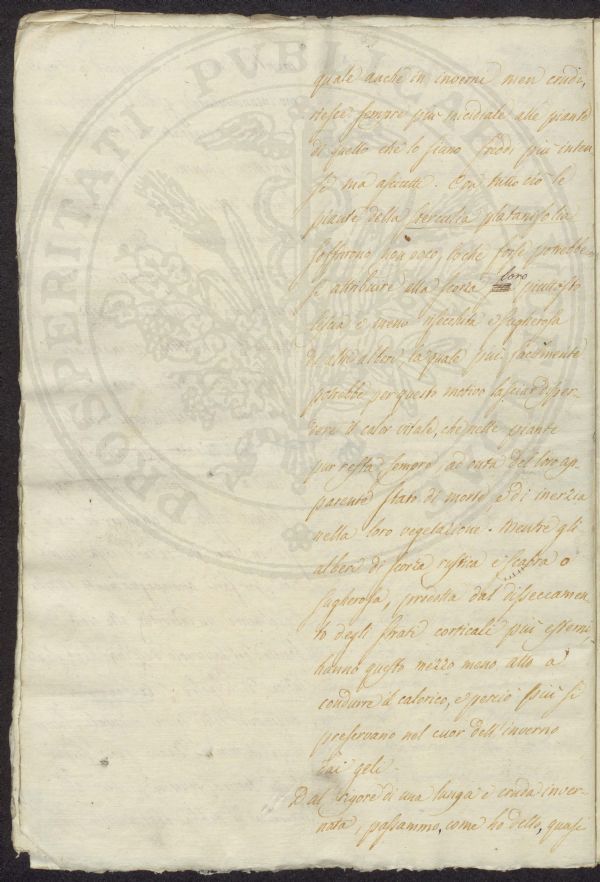 quale anche in inverni men crudi,
riesce sempre più micidiale alle piante
di quello che lo siano freddi più inten-
si ma asciutti. Con tutto ciò le
piante della Sterculia platanifolia
soffrirono non poco, loche forse potrebbe-
si attribuire alla scorza loro piuttosto
liscia e meno rilevata e sugherosa
di altri alberi la quale più facilmente
potrebbe per questo motivo lasciar disper-
dere il calor vitale, che nelle piante
pur resta sempre, ad onta del loro ap-
parente stato di morte e di inerzia
nella loro vegetazione. Mentre gli
alberi di scorza rustica e scabra o
sugherosa, prodotta dal disseccamen-
to degli strati corticali più esterni,
hanno questo mezzo meno atto a
condurre il calorico, e perciò più si
preservano nel cuor dell'inverno
dai geli.
Dal rigore di una lunga e cruda inver-
nata, passammo, come ho detto, quasi
PROSPERITATI PVBLICAE